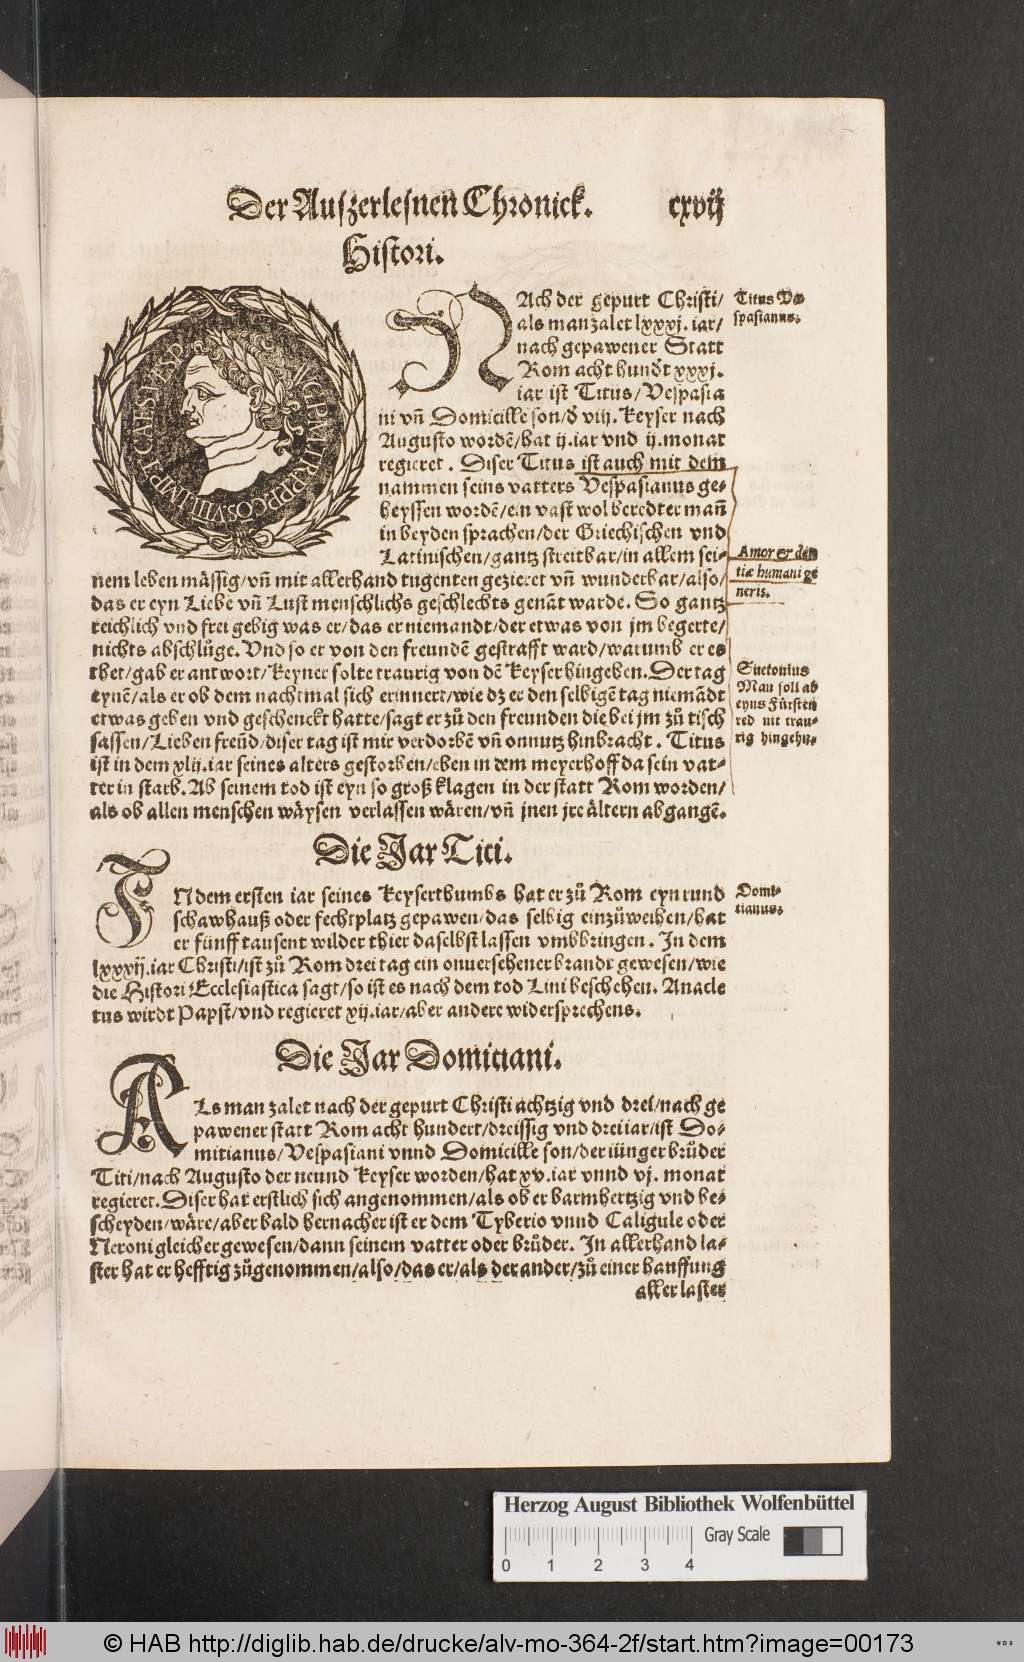 Der Auszerlesnen Chronick. cxvij
Histori.
IMP T CAES VESP AVG P M TR P P P COS VIII
NAch der gepurt Christi/
als man zalet lxxxj. iar/
nach gepawener Statt
Rom acht hundt xxxj.
iar ist Titus/Vespasia
ni vñ Domicille son/d viij. keyser nach
Augusto wordē/hat ij.iar vnd ij.monat
regieret. Diser Titus ist auch mit dem
nammen seins vatters Vespasianus ge-
heyssen wordē/ein vast wol beredter mañ
in beyden sprachen/der Griechischen vnd
Latinischen/gantz streitbar/in allem sei-
nem leben mässig/vñ mit allerhand tugenten gezieret vñ wunderbar/also/
das er eyn Liebe vñ Lust menschlichs geschlechts genāt warde. So gantz
reichlich vnd frei gebig was er/das er niemandt/der etwas von jm begerte/
nichts abschlůge. Vnd so er von den freundē gestrafft ward/warumb er es
thet/gab er antwort/keyner solte traurig von dē keyser hingehen. Der tag
eynē/als er ob dem nachtmal sich erinnert/wie dz er den selbigē tag niemādt
etwas geben vnd geschenckt hatte/sagt er zů den freunden die bei jm zů tisch
sassen/Lieben freūd/diser tag ist mir verdorbē vñ onnutz hinbracht. Titus
ist in dem xlij.iar seines alters gestorben/eben in dem meyerhoff da sein vat-
ter in starb. Ab seinem tod ist eyn so groß klagen in der statt Rom worden/
als ob allen menschen wäysen verlassen wären/vñ jnen jre ältern abgangē.
Titus Ve-
spasianus.
Amor & deli
tiæ humani ge
neris.
Suetonius
Man soll ab
eyns Fürsten
red nit trau-
rig hingehn.
Die Jar Titi.
INdem ersten iar seines keyserthumbs hat er zů Rom eyn rund
schawhauß oder fechtplatz gepawen/das selbig einzůweihen/hat
er fünff tausent wilder thier daselbst lassen vmbbringen. In dem
lxxxij.iar Christi/ist zů Rom drei tag ein onuersehener brandt gewesen/wie
die Histori Ecclesiastica sagt/so ist es nach dem tod Lini beschehen. Anacle
tus wirdt Papst/vnd regieret xij.iar/aber andere widersprechens.
Domi-
tianus.
Die Jar Domitiani.
ALs man zalet nach der gepurt Christi achtzig vnd drei/nach ge
pawener statt Rom acht hundert/dreissig vnd drei iar/ist Do-
mitianus/Vespasiani vnnd Domicille son/der iünger brůder
Titi/nach Augusto der neund keyser worden/hat xv.iar vnnd vj. monat
regieret. Diser hat erstlich sich angenommen/als ob er barmhertzig vnd be-
scheyden/wäre/aber bald hernacher ist er dem Tyberio vnnd Caligule oder
Neroni gleicher gewesen/dann seinem vatter oder brůder. In allerhand la-
ster hat er hefftig zůgenommen/also/das er/als der ander/zů einer hauffung
aller laster
Herzog August Bibliothek Wolfenbüttel
Gray Scale
0 1 2 3 4
© HAB http://diglib.hab.de/drucke/alv-mo-364-2f/start.htm?image=00173
WDB